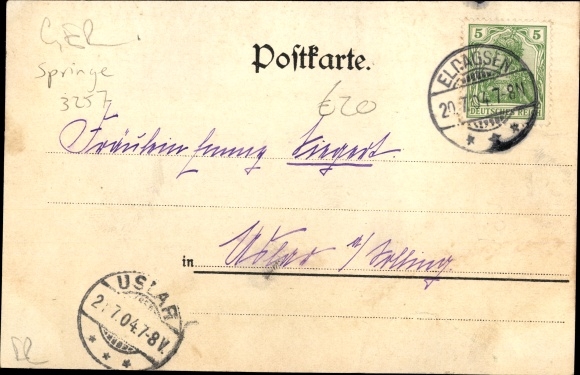 GER.
Springe
3257
Postkarte.
€20
5 5
DEUTSCHES REICH
ELDAGSEN
20.7.04.7-8V.
Fräulein Fanny Siegert.
in Uslar a/ Solling.
USLAR
21.7.04.7-8V.